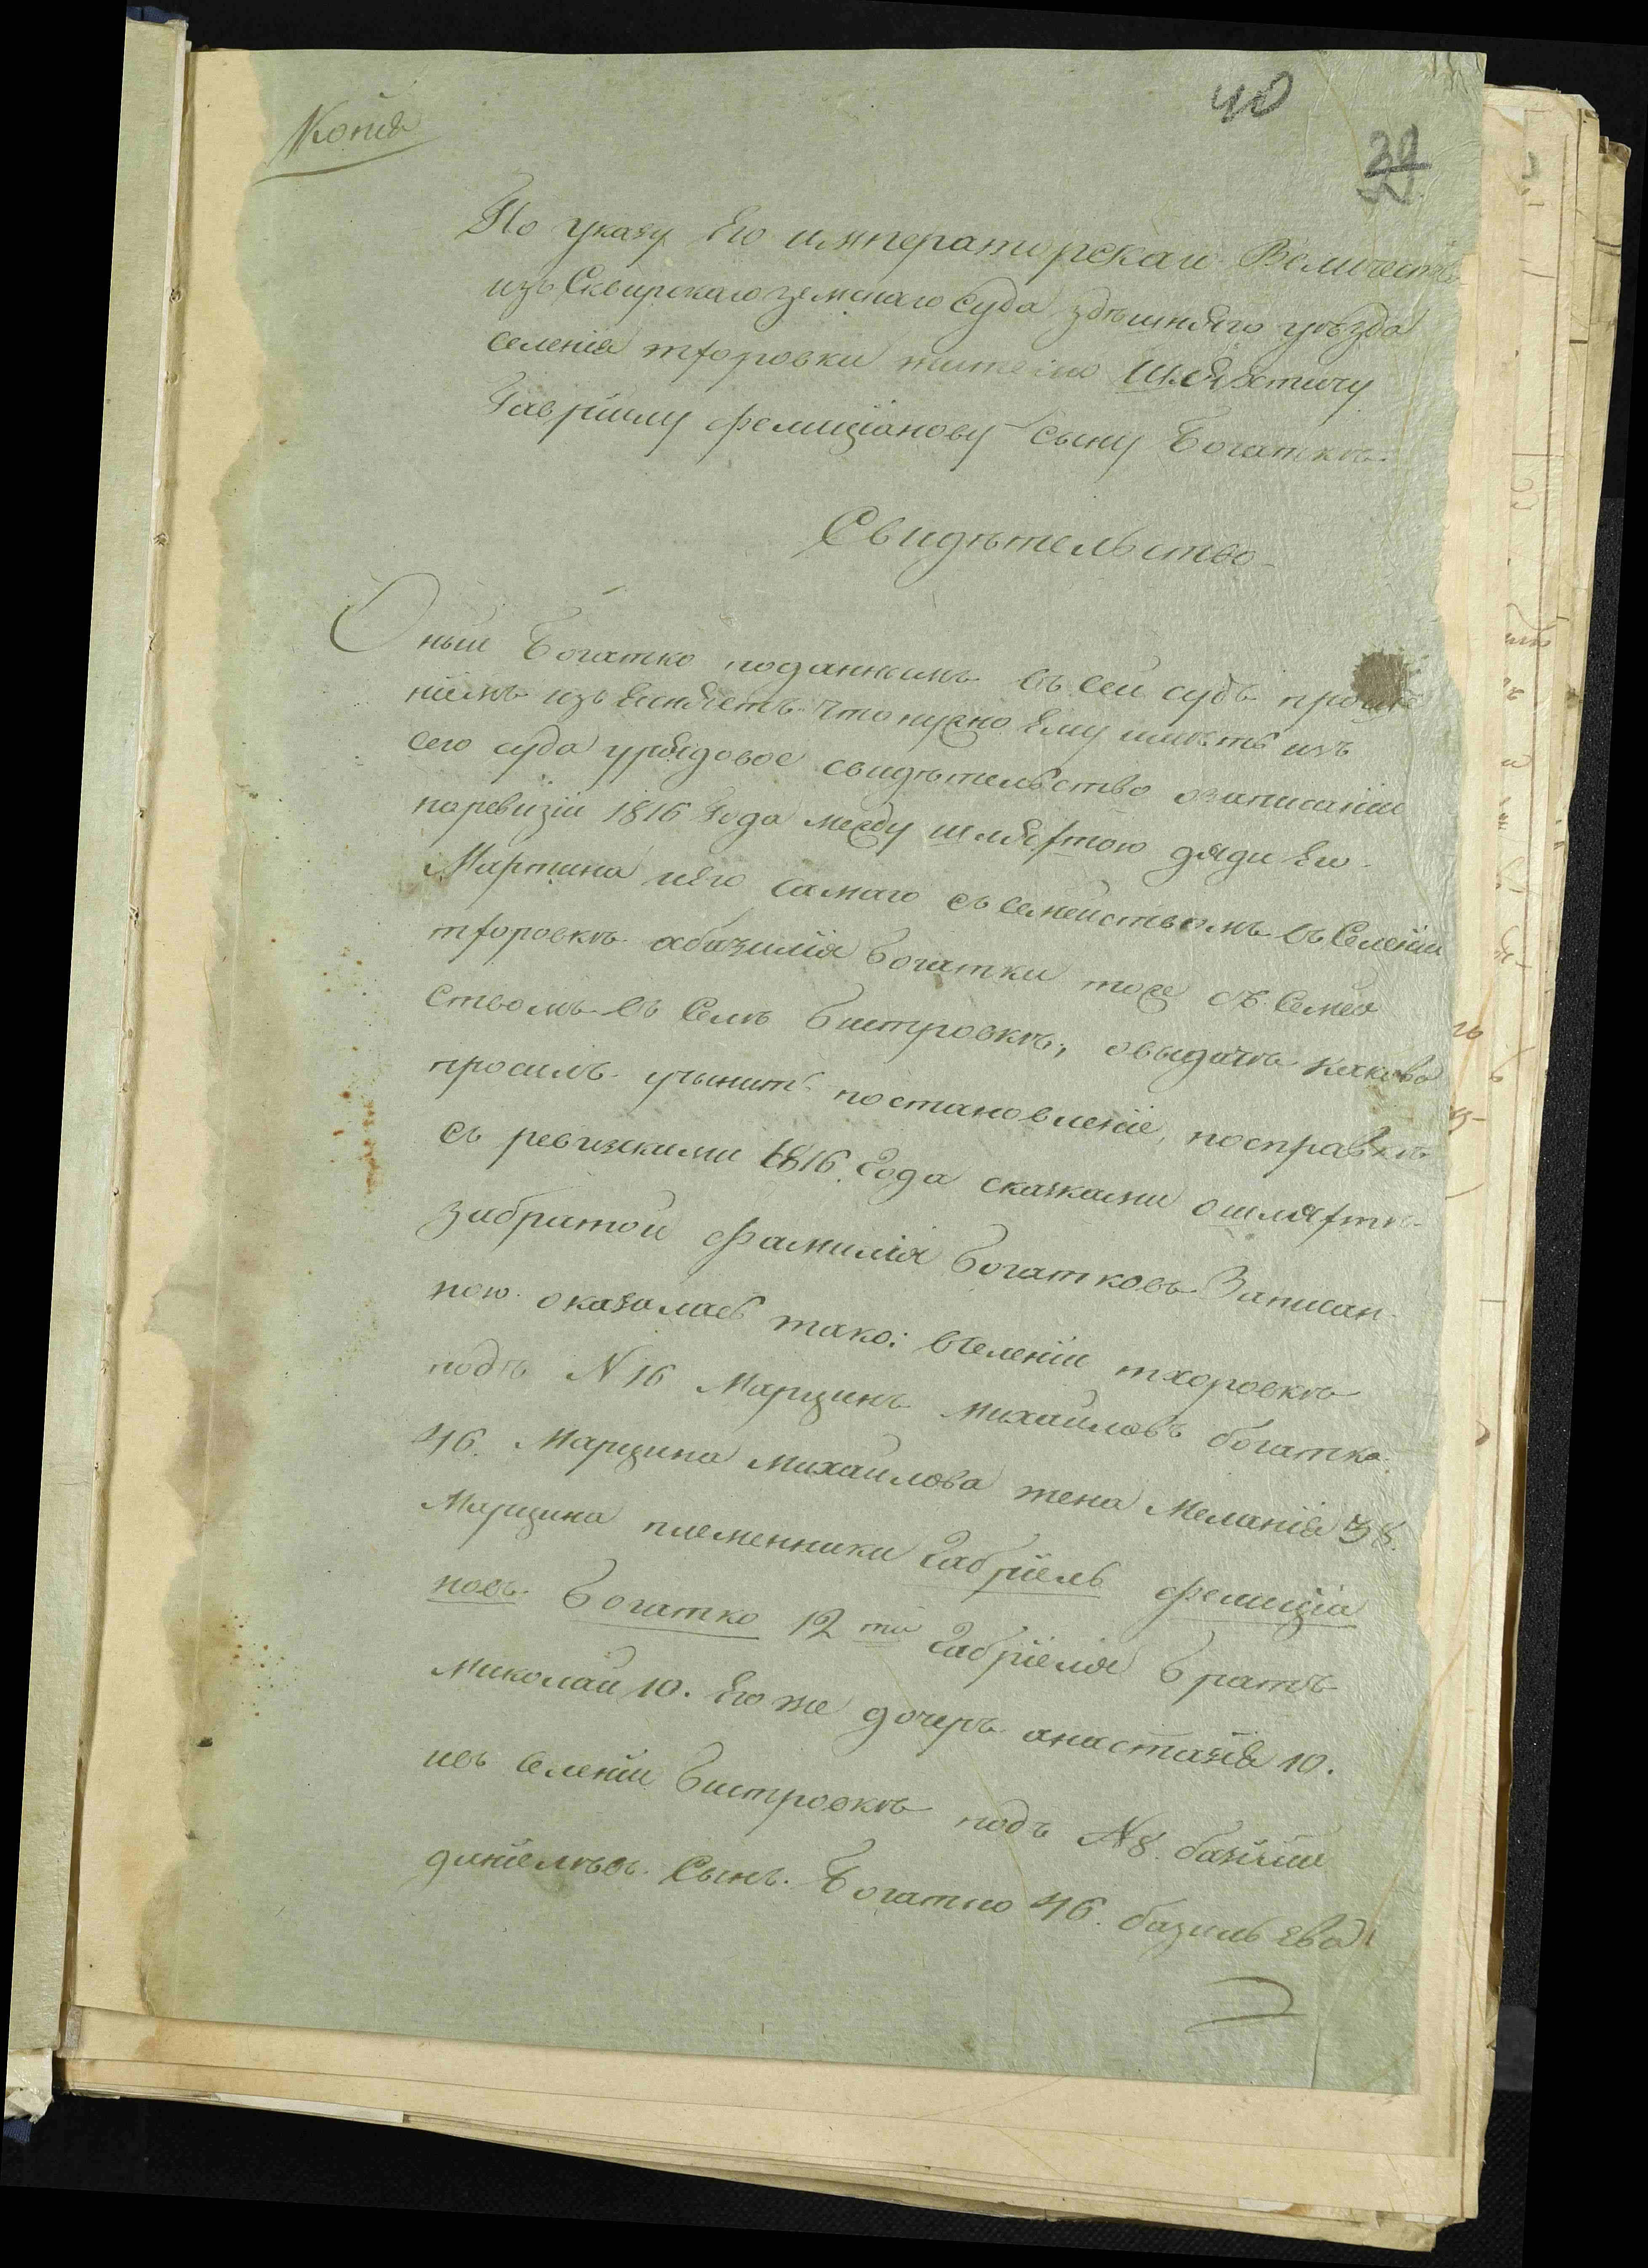 40
39
Копія
По указу Его императорскаго Величеств
изъ Сквирскаго земскаго Суда здѣшняго уѣзда
селенія тхоровки жителю Шляхтичу
Гавріилу фелиціанову сыну Богаткѣ.
Свидѣтельство
Оный Богатко поданнымъ въ сей судъ проше
ніемъ изъясняетъ что нужно Ему имѣть изъ
сего суда урядовое свидѣтельство озаписаніи
поревизіи 1816 года между шляхтою дяди Его
Мартина иего самаго съ семействомъ въ Селеніи
тхоровкѣ абазилія Богатки тоже съ Семей
ствомъ въ Селѣ Бистровкѣ, овыдачѣ каково
просилъ учинить постановленіе, посправкѣ
съ ревизкими 1816 Года сказками ошляхтѣ
забратой фамилія Богатковъ Записан
ною оказалась тако: вселеніи тхоровкѣ
подъ N 16 Марцинъ Михайловъ богатко
46. Марцина Михайлова жена Меланія 38.
Марцина племенники Габріель фелиціа
новъ Богатко 12 ти Габріеля братъ
Миколай 10. Его же дочерь анастазія 10.
ивъ Селеніи Бистровкѣ подъ N 8. базилій
даніелѣвъ Сынъ Богатко 46. базильева